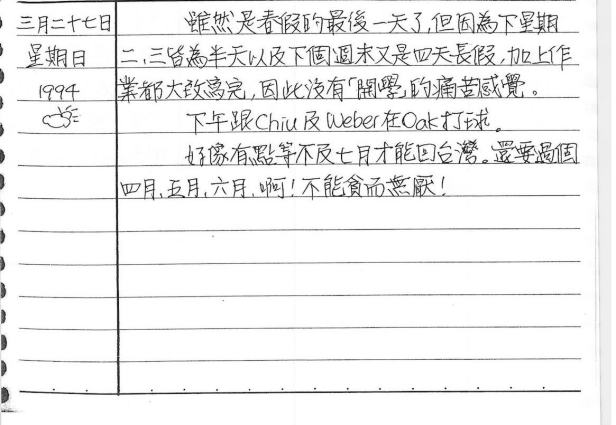 三月二十七日
星期日
1994
雖然是春假的最後一天了,但因為下星期
二、三皆為半天以及下個週末又是四天長假,加上作
業都大致寫完,因此沒有「開學」的痛苦感覺。
下午跟Chiu及Weber在Oak打球。
好像有點等不及七月才能回台灣。還要過個
四月、五月、六月,啊!不能貪而無厭!